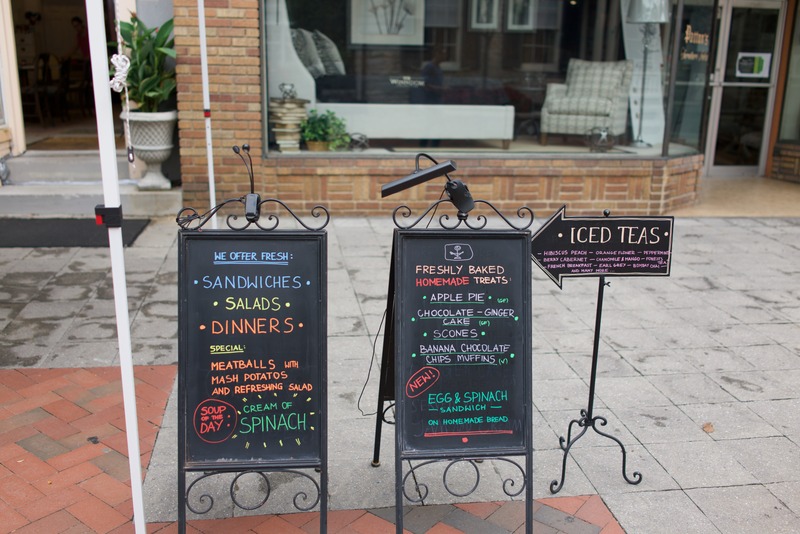 WE OFFER FRESH:
• SANDWICHES •
• SALADS •
• DINNERS •
SPECIAL:
MEATBALLS WITH
MASH POTATOS
AND REFRESHING SALAD
SOUP
OF THE
DAY:
CREAM OF
SPINACH
FRESHLY BAKED
HOMEMADE TREATS:
• APPLE PIE • (GF)
CHOCOLATE - GINGER
CAKE (GF)
• SCONES •
BANANA CHOCOLATE
CHIPS MUFFINS (V)
NEW!
EGG & SPINACH
- SANDWICH -
ON HOMEMADE BREAD
• ICED TEAS •
HIBISCUS PEACH - ORANGE FLOWER - PEPPERMINT
BERRY CABERNET - CHAMOMILE & MANGO -
- FRENCH BREAKFAST - EARL GREY - BOMBAY CHAI
AND MANY MORE...